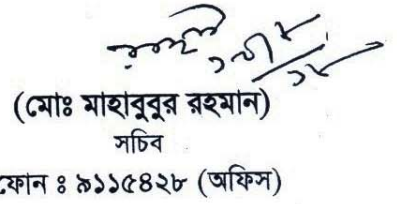 (মোঃ মাহাবুবুর রহমান)
সচিব
ফোন ঃ ৯১১৫৪২৮ (অফিস)